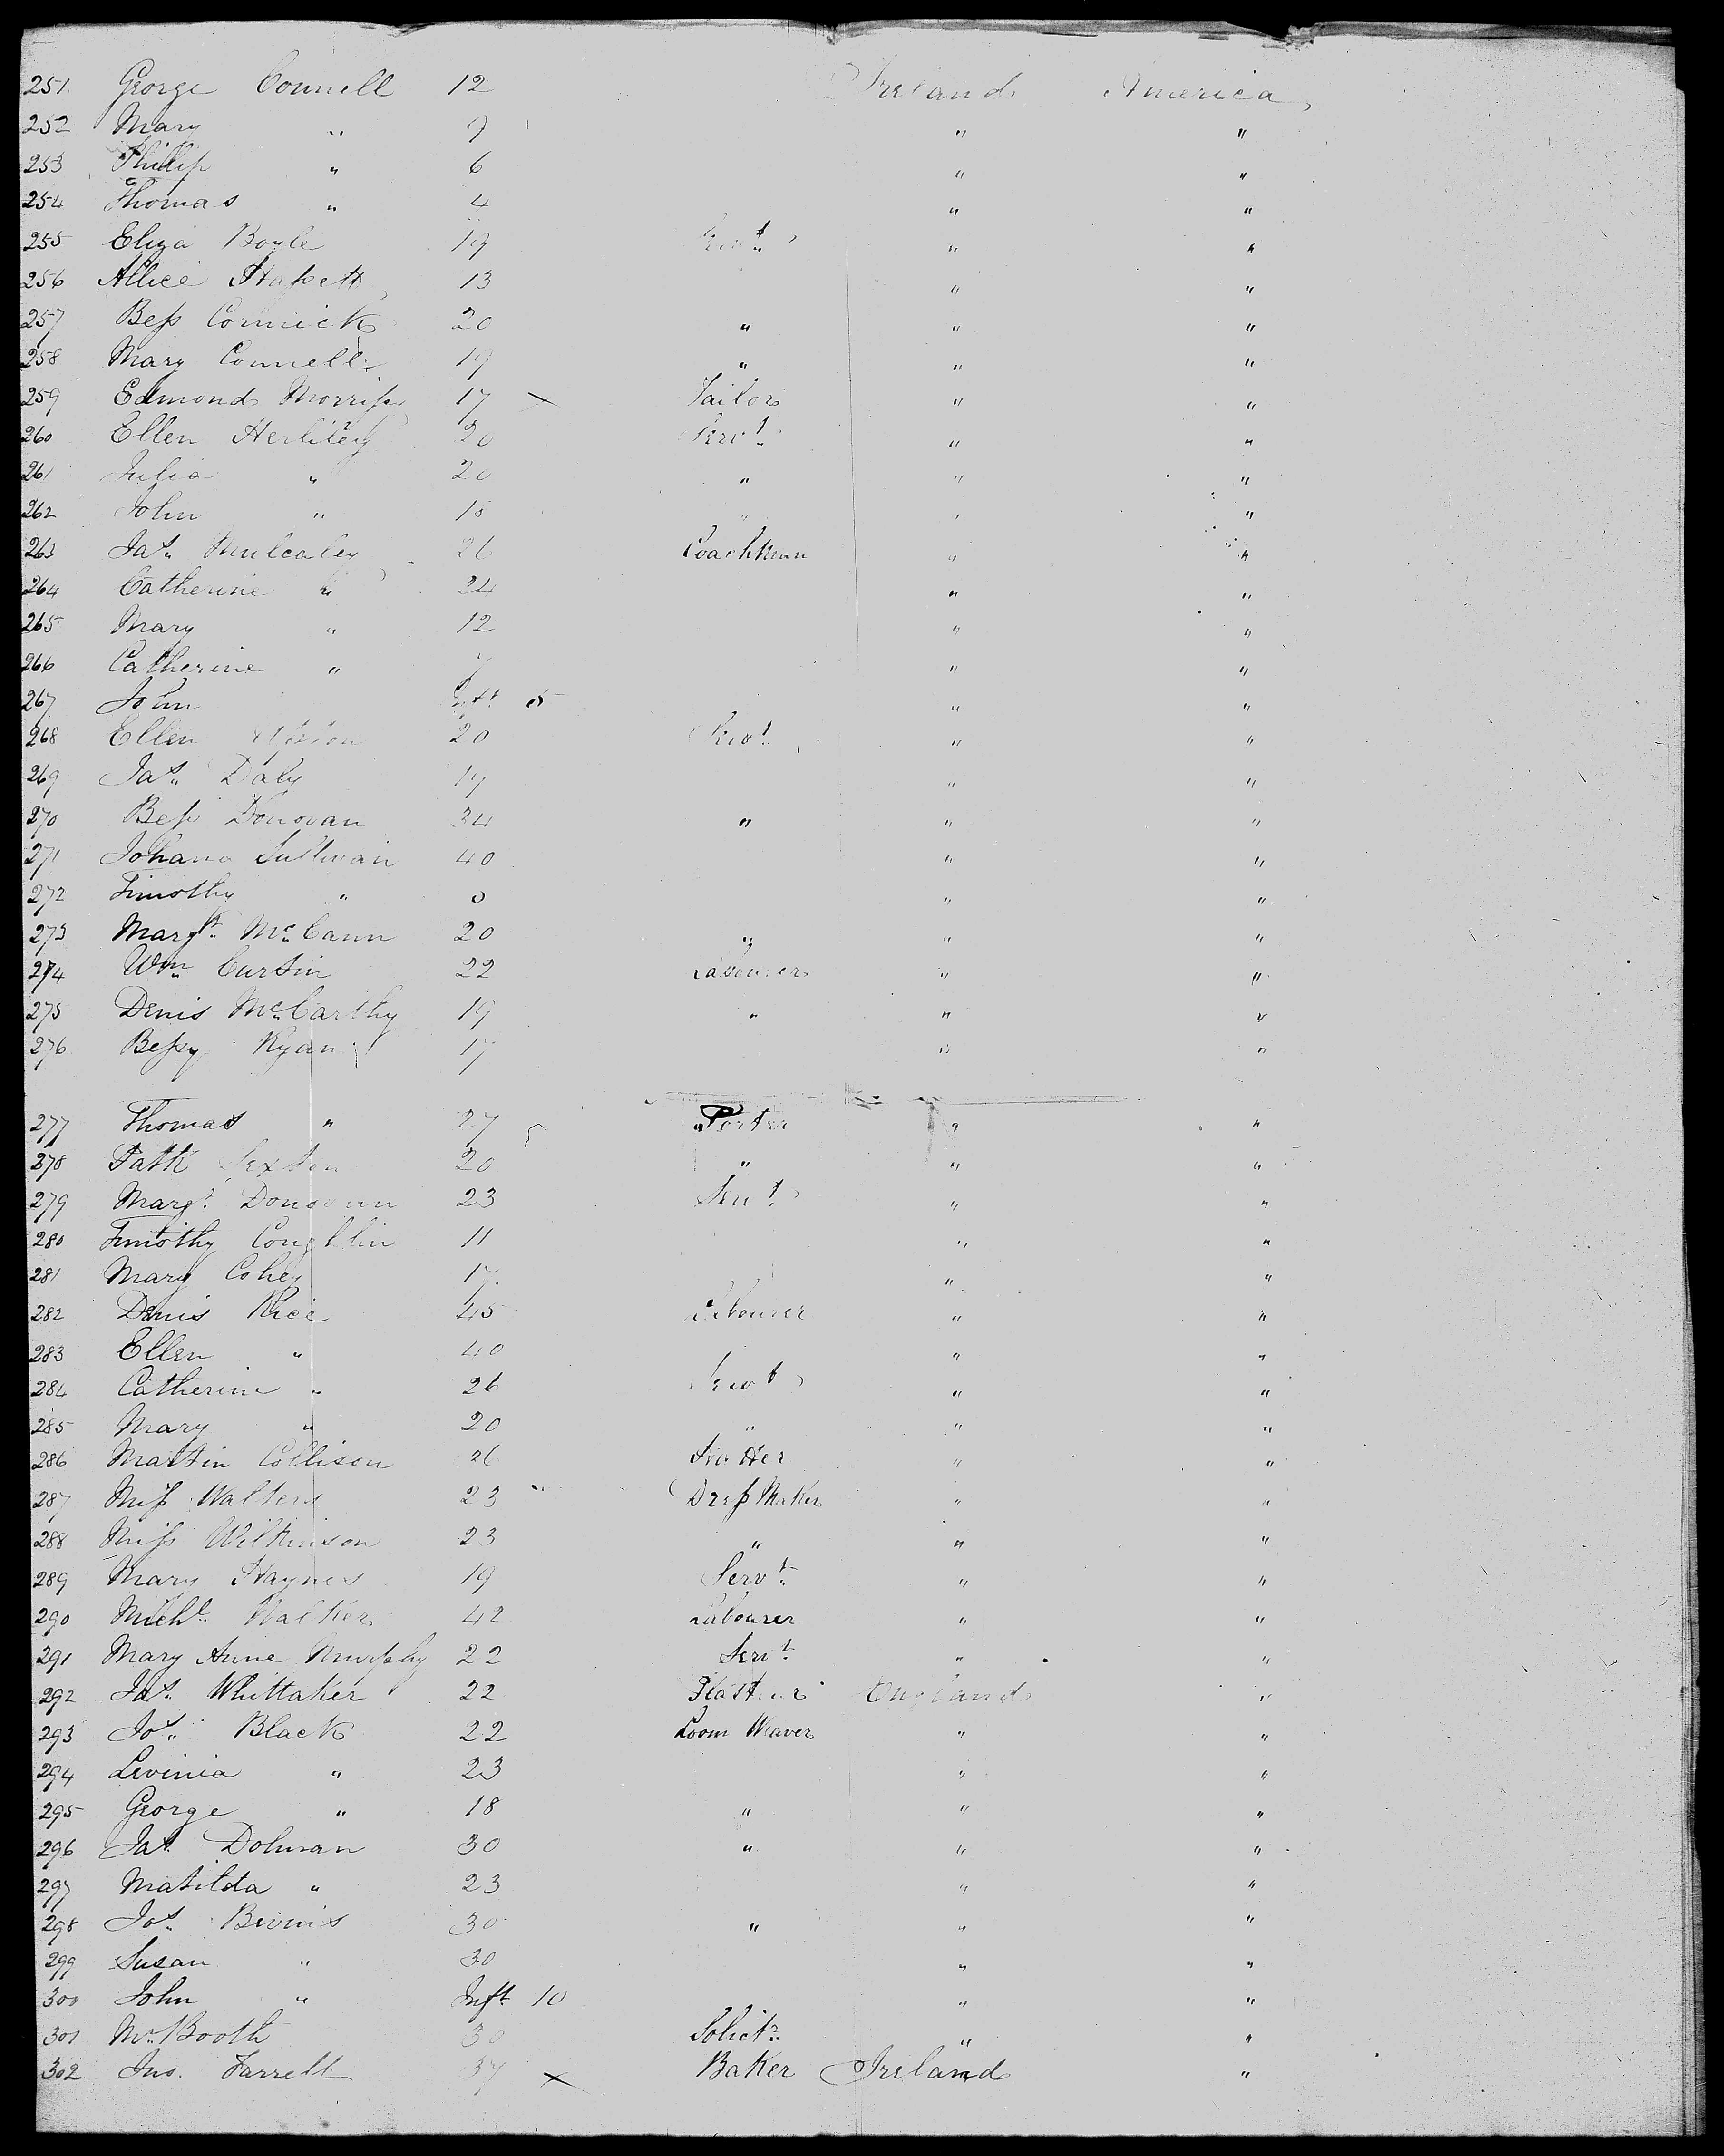 251 George Connell 12 Ireland America
252 Mary " 9 " "
253 Philip " 6 " "
254 Thomas " 4 " "
255 Eliza Boyle 19 Servt " "
256 Allice Hassett 13 " "
257 Bess Cormick 20 " " "
258 Mary Connell 19 " " "
259 Edmond Morriss 17 × Tailor " "
260 Ellen Herlihy 20 Servt " "
261 Julia " 20 " " "
262 John " 15 " " "
263 Jas. Mulcahy 26 Coachman " "
264 Catherine " 24 " "
265 Mary " 12 " "
266 Catherine " 7 " "
267 John Inft " "
268 Ellen 20 Servt " "
269 Jas. Daly 17 " "
270 Bess Donovan 34 " " "
271 Johana Sullivan 40 " "
272 Timothy " " "
273 Margt. McCann 20 " " "
274 Wm. Curtin 22 Labourer " "
275 Denis McCarthy 19 " " "
276 Bessy Ryan 17 " "
277 Thomas " 27 Porter " "
278 Patk Sexton 20 " " "
279 Margt. Donovan 23 Servt " "
280 Timothy Coughlin 11 " "
281 Mary Cohey 17 " "
282 Denis Rice 45 Labourer " "
283 Ellen " 40 " "
284 Catherine " 26 Servt " "
285 Mary " 20 " " "
286 Martin Collison 26 " "
287 Miss Walters 23 Dress Maker " "
288 Miss Wilkinson 23 " " "
289 Mary Haynes 19 Servt. " "
290 Michl. Walker 42 Labourer " "
291 Mary Anne Murphy 22 Servt. " "
292 Jas. Whittaker 22 Plasterer England "
293 Jos. Black 22 Loom Weaver " "
294 Levinia " 23 " "
295 George " 18 " " "
296 Jas. Dolman 30 " " "
297 Matilda " 23 " "
298 Jos. Bivins 30 " " "
299 Susan " 30 " "
300 John " Inft 10 " "
301 Mr. Booth 30 Solictr. " "
302 Jno. Farrell 37 × Baker Ireland "